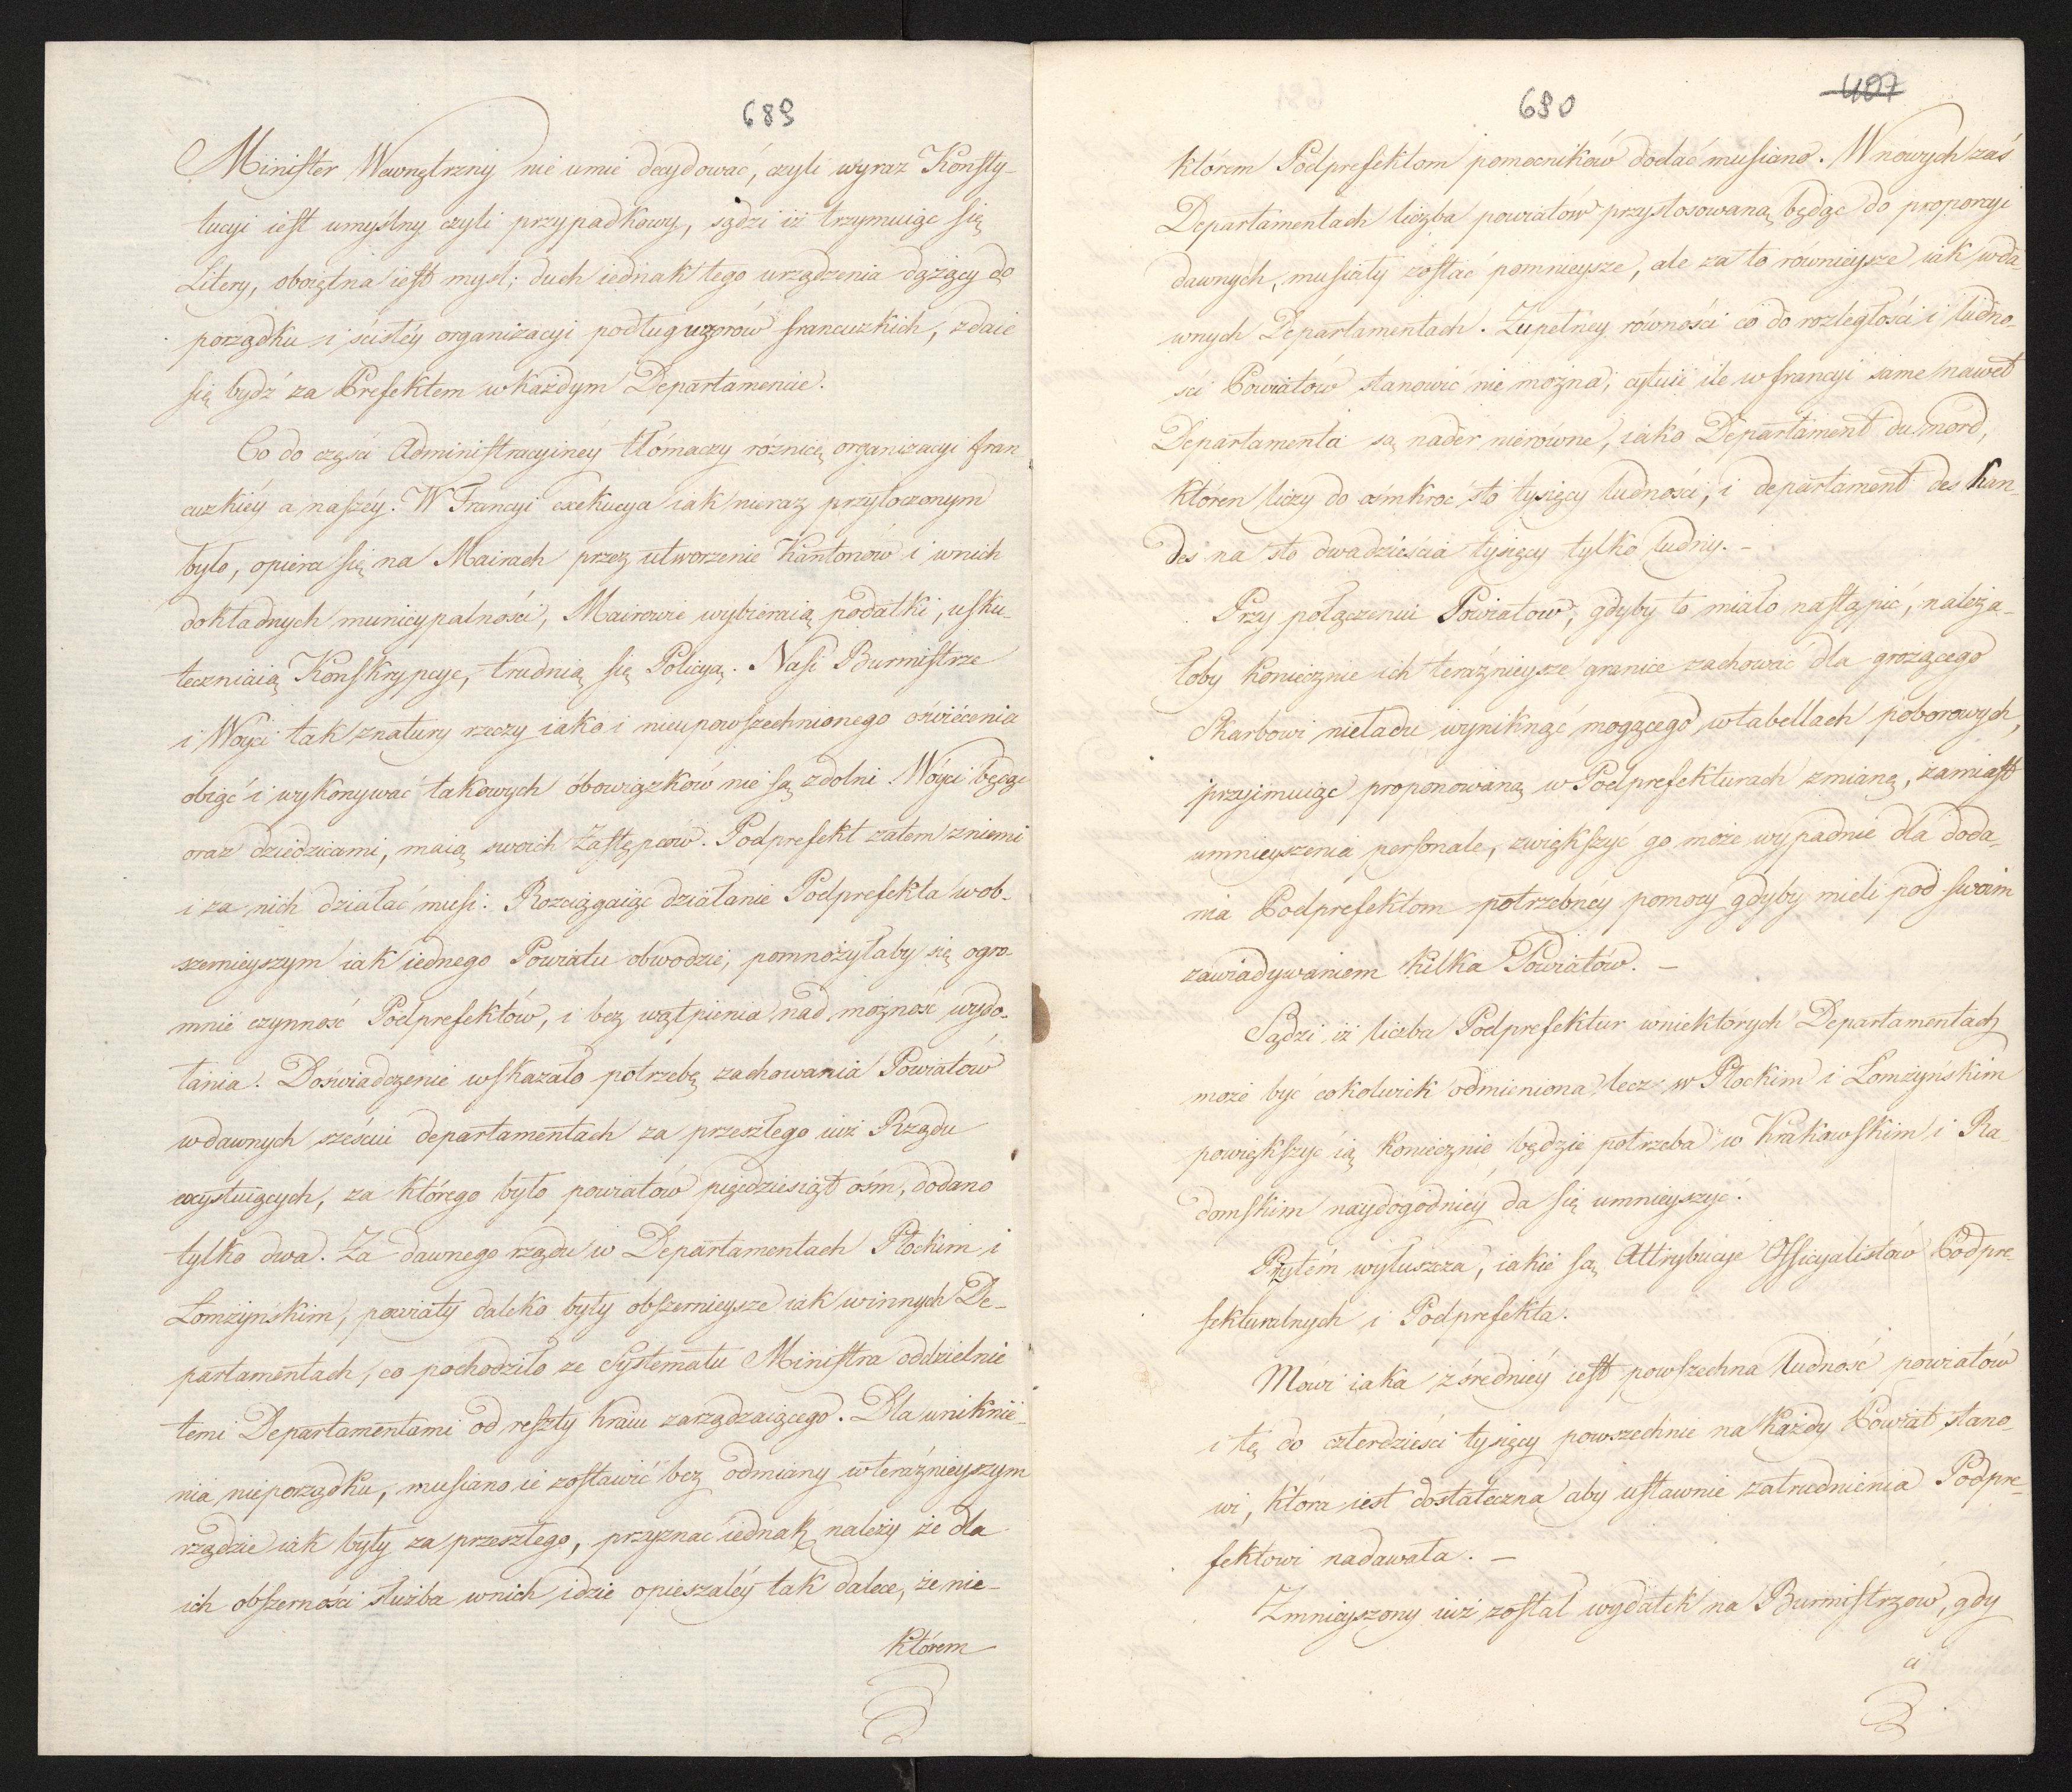 689
Minister Wewnętrzny nie umie decydować, czyli wyraz Konsty-
tucyi iest umyślny czyli przypadkowy, sądzi iż trzymuiąc się
Litery, oboiętna iest myśl; duch iednak tego urządzenia dążący do
porządku i ścisłéy organizacyi podług wzorów francuzkich, zdaie
się bydź za Prefektem w każdym Departamencie.
Co do części Administracyinéy tłómaczy różnicę organizacyi fran
cuzkiéy a naszéy. W Francyi exekucya iak nieraz przytoczonym
było, opiera się na Mairach przez utworzenie Kantonów i wnich
dokładnych municypalności, Mairowie wybieraią podatki, usku-
teczniaią Konskrypcye, trudnią się Policyą. Nasi Burmistrze
i Wóyci tak znatury rzeczy iako i nieupowszechnionego oświécenia
obiąć i wykonywać takowych obowiązków nie są zdolni Wóyci będąc
oraz dziedzicami, maią swoich Zastępców. Podprefekt zatem zniemi
i za nich działać musi. Rozciągaiąc działanie Podprefekta wob-
szernieyszym iak iednego Powiatu obwodzie, pomnożyłaby się ogro-
mnie czynność Podprefektów, i bez wątpienia nad możność wydo-
łania. Doświadczenie wskazało potrzebę zachowania Powiatów
wdawnych sześciu departamentach za przeszłego iuż Rządu
exystuiących, za którego było powiatów pięćdziesiąt ośm, dodano
tylko dwa. Za dawnego rządu w Departamentach Płockim i
Łomżyńskim, powiaty daleko były obszernieysze iak winnych De-
partamentach, co pochodziło ze Systematu Ministra oddzielnie
temi Departamentami od reszty kraiu zarządzaiącego. Dla uniknie-
nia nieporządku, musiano ie zostawić bez odmiany wteraźnieyszym
rządzie iak były za przeszłego, przyznać iednak należy że dla
ich obszerności służba wnich idzie opieszaléy tak dalece, że nie-
którem
680
407
którem Podprefektom pomocników dodać musiano. W nowych zaś
Departamentach liczba powiatów przystosowaną będąc do proporcyi
dawnych, musiały zostać pomnieysze, ale za to równieysze iak wda-
wnych Departamentach. Zupełney równości co do rozległości i ludno-
ści Powiatów stanowić nie można; cytuie ile w francyi same nawet
Departamenta są nader nierówne, iako Departament du nord,
któren liczy do ośmkroć sto tysięcy ludności, i departament des Lan-
des na sto dwadzieścia tysięcy tylko ludny. -
Przy połączeniu Powiatow, gdyby to miało nastąpić, należa-
łoby koniecznie ich teraźnieysze granice zachować dla grożącego
Skarbowi nieładu wyniknąć mogącego wtabellach poborowych,
przyimuiąc proponowaną w Podprefekturach zmianę, zamiast
umnieyszenia personale, zwiększyć go może wypadnie dla doda-
nia Podprefektom potrzebnéy pomocy gdyby mieli pod swoim
zawiadywaniem kilka Powiatów. -
Sądzi iż liczba Podprefektur wniektorych Departamentach
może być cokolwiek odmieniona lecz w Płockim i Łomżyńskim
powiększyć ią koniecznie będzie potrzeba w Krakowskim i Ra-
domskim naydogodniéy da się umnieyszyć.
Przytém wyłuszcza, iakie są Attrybucye Officyalistów Podpre-
fekturalnych i Podprefekta.
Mówi iaka z średniéy iest powszechna ludność powiatów
i tę do czterdzieści tysięcy powszechnie na każdy Powiat stano-
wi, która iest dostateczna aby ustawnie zatrudnienia Podpre-
fektowi nadawała. -
Zmnieyszony iuż został wydatek na Burmistrzów, gdy
ci